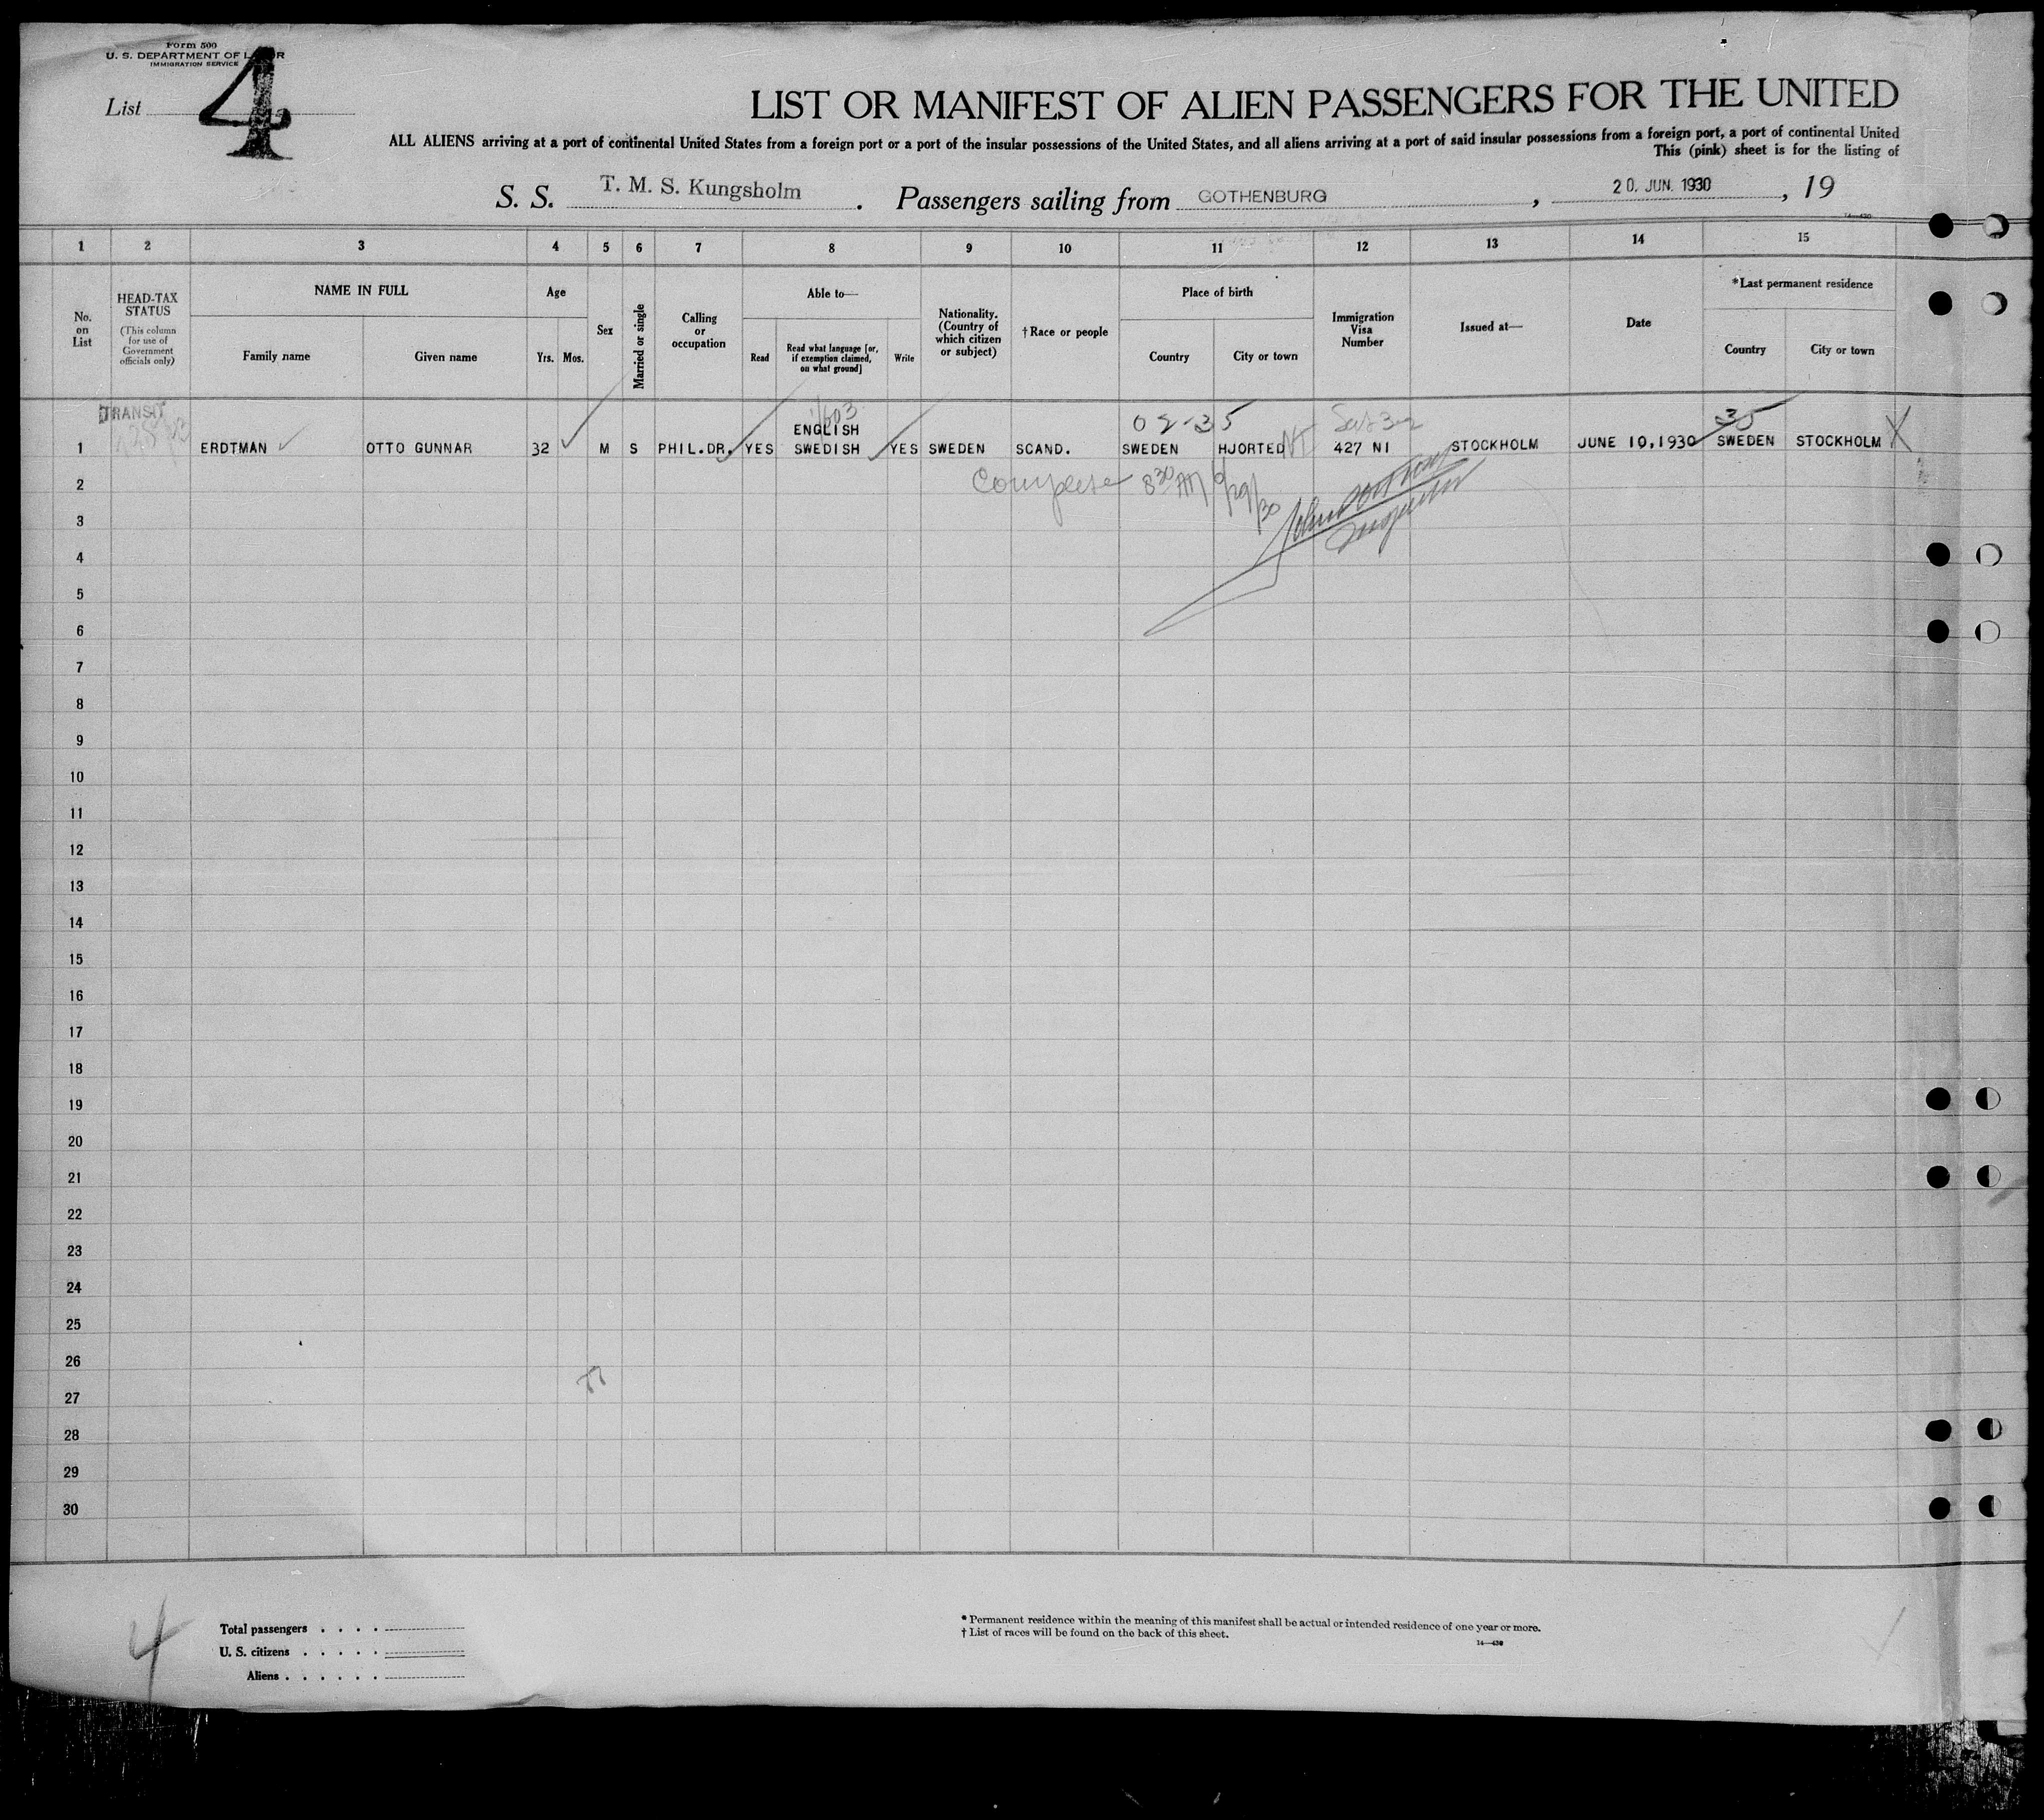 Form 500
U. S. DEPARTMENT OF L R
IMMIGRATION SERVICE
List 4
LIST OR MANIFEST OF ALIEN PASSENGERS FOR THE UNITED
ALL ALIENS arriving at a port of continental United States from a foreign port or a port of the insular possessions of the United States, and all aliens arriving at a port of said insular possessions from a foreign port, a port of continental United
This (pink) sheet is for the listing of
S. S. T. M. S. Kungsholm . Passengers sailing from GOTHENBURG , 20. JUN. 1930 , 19
14—430
1 2 3 4 5 6 7 8 9 10 11 12 13 14 15
No. on List
HEAD-TAX STATUS
(This column for use of Government officials only)
NAME IN FULL
Family name Given name
Age
Yrs. Mos.
Sex
Married or single
Calling or occupation
Able to—
Read
Read what language [or, if exemption claimed, on what ground]
Write
Nationality. (Country of which citizen or subject)
†Race or people
Place of birth
Country City or town
Immigration Visa Number
Issued at—
Date
*Last permanent residence
Country City or town
TRANSIT
02-35
35
ENGLISH
1 ERDTMAN OTTO GUNNAR 32 M S PHIL.DR. YES SWEDISH YES SWEDEN SCAND. SWEDEN HJORTED 427 NI STOCKHOLM JUNE 10,1930 SWEDEN STOCKHOLM X
2
Complete 8 30 AM 6/29/30
3
4
5
6
7
8
9
10
11
12
13
14
15
16
17
18
19
20
21
22
23
24
25
26
27
28
29
30
4
Total passengers . . . .
U. S. citizens . . . . .
Aliens . . . . . .
* Permanent residence within the meaning of this manifest shall be actual or intended residence of one year or more.
† List of races will be found on the back of this sheet.
14—430